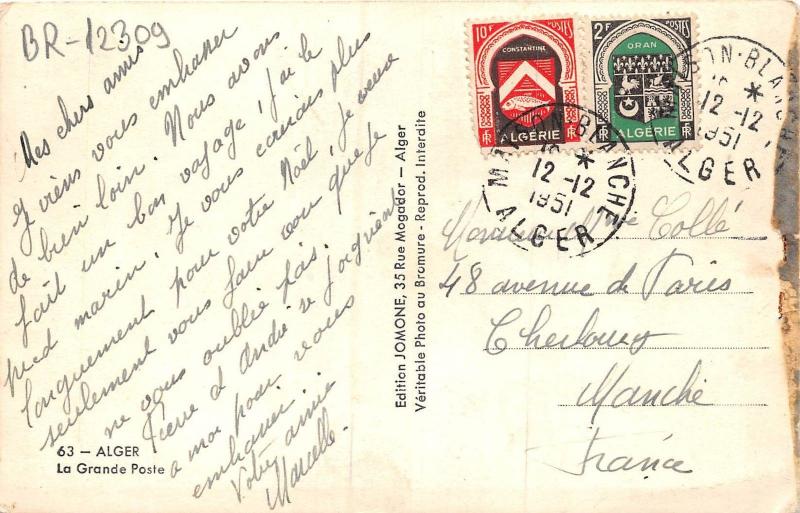 BR-12309
Mes chers amis
Je viens vous embrasser
de bien loin. Nous avons
fait un bon voyage, j'ai le
pied marin. Je vous écrirai plus
longuement pour votre Noël, je veux
seulement vous faire voir que je
ne vous oublie pas.
Pierre et André se joignent
à moi pour vous
embrasser.
Votre amie
Marcelle.
63 — ALGER
La Grande Poste
Edition JOMONE, 35 Rue Mogador — Alger
Véritable Photo au Bromure - Reprod. Interdite
10F POSTES
CONSTANTINE
RF ALGÉRIE
2F POSTES
ORAN
RF ALGÉRIE RF
MAISON-BLANCHE
12-12
1951
ALGER
MAISON-BLANCHE
12-12
1951
ALGER
Monsieur Mme Collé
48 avenue de Paris
Cherbourg
Manche
France